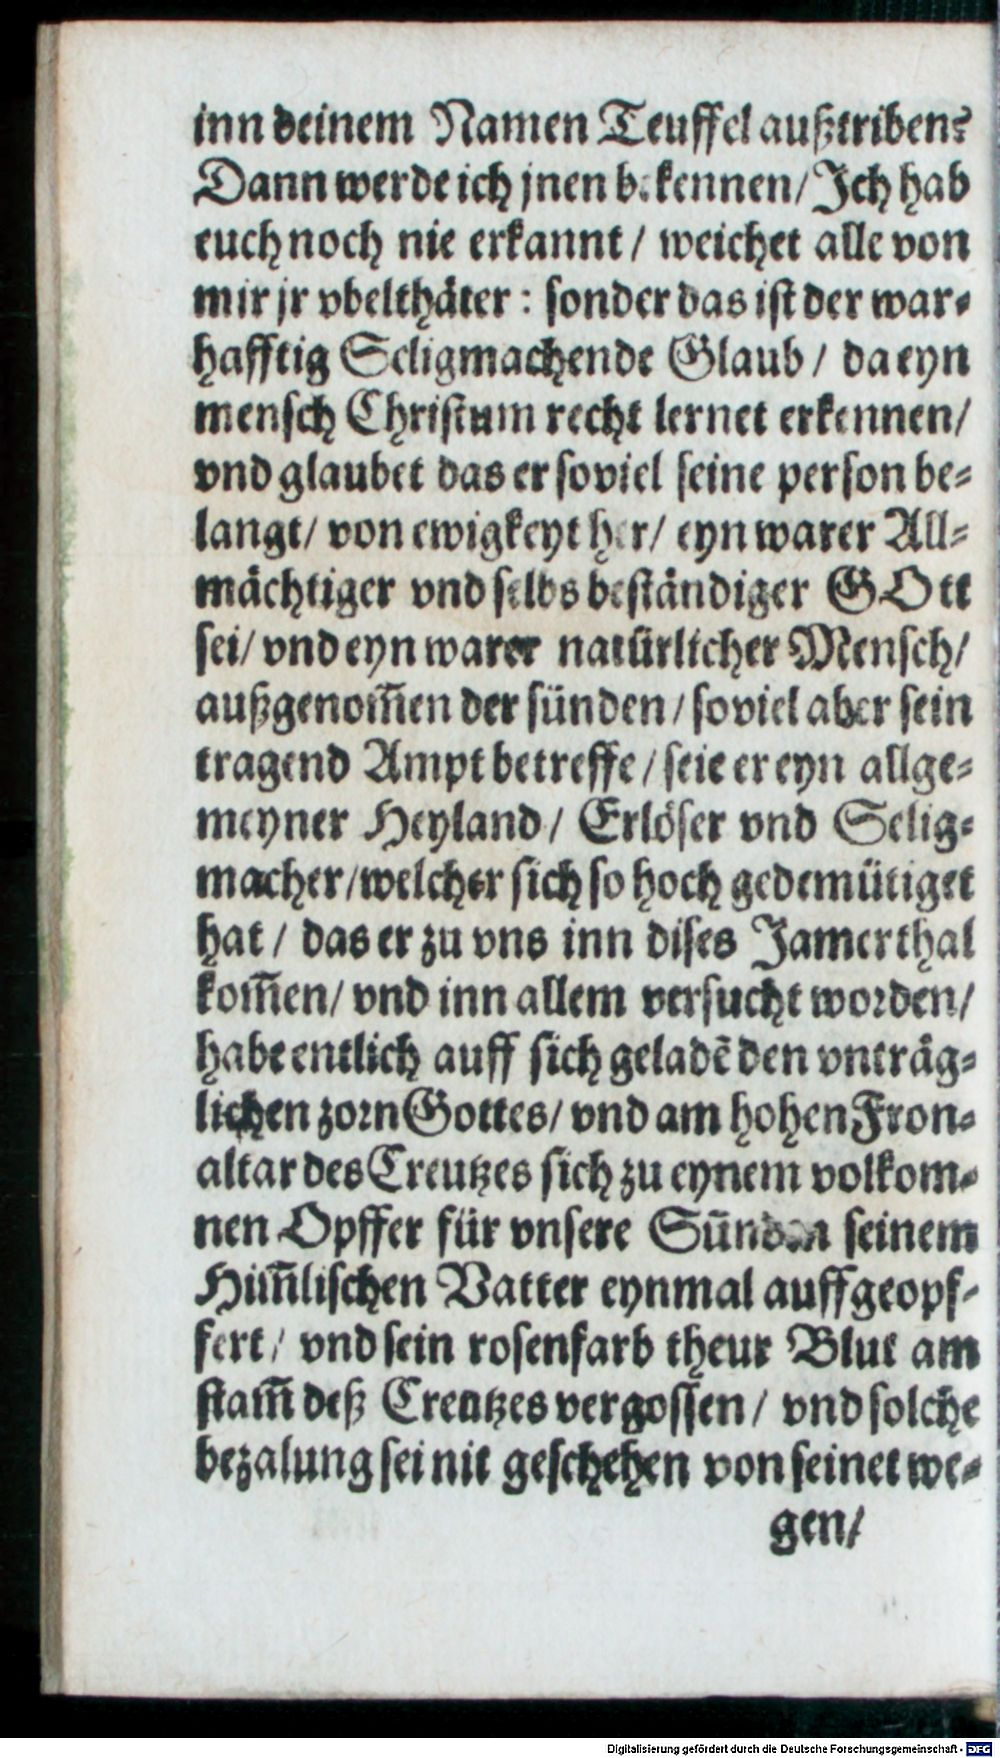 inn deinem Namen Teuffel außtriben?
Dann werde ich jnen bekennen/ Jch hab
euch noch nie erkannt / weichet alle von
mir jr vbelthäter : sonder das ist der war-
hafftig Seligmachende Glaub / da eyn
mensch Christum recht lernet erkennen/
vnd glaubet das er soviel seine person be-
langt/ von ewigkeyt her/ eyn warer All-
mächtiger vnd selbs beständiger GOtt
sei/ vnd eyn warer natürlicher Mensch/
außgenom̃en der sünden / soviel aber sein
tragend Ampt betreffe / seie er eyn allge-
meyner Heyland / Erlöser vnd Selig-
macher/welcher sich so hoch gedemütiget
hat / das er zu vns inn dises Jamerthal
kom̃en/ vnd inn allem versucht worden/
habe entlich auff sich geladẽ den vnträg-
lichen zorn Gottes/ vnd am hohen Fron-
altar des Creutzes sich zu eynem volkom-
nen Opffer für vnsere Sünden seinem
Him̃lischen Vatter eynmal auffgeopf-
fert / vnd sein rosenfarb theur Blut am
stam̃ deß Creutzes vergossen / vnd solche
bezalung sei nit geschehen von seinet we-
gen/
Digitalisierung gefördert durch die Deutsche Forschungsgemeinschaft - DFG